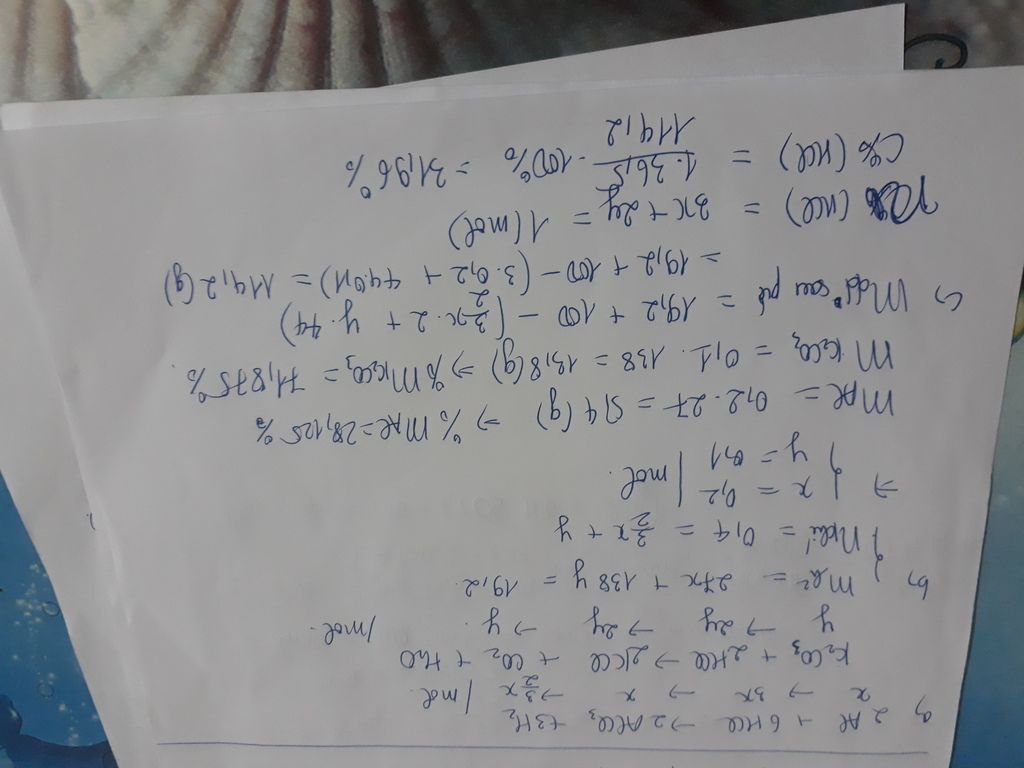 a) 2Al + 6HCl → 2AlCl3 + 3H2
x → 3x → x → 3/2x /mol
K2CO3 + 2HCl → 2KCl + CO2 + H2O
y → 2y → 2y → y /mol.
b) { mhh = 27x + 138y = 19,2
nkhí = 0,4 = 3/2x + y
⇒ { x = 0,2
y = 0,1 | mol.
mAl = 0,2.27 = 5,4(g) ⇒ %mAl = 28,125%
mK2CO3 = 0,1.138 = 13,8(g) ⇒ %mK2CO3 = 71,875%
c) mdd sau pứ = 19,2 + 100 - (3/2x.2 + y.44)
= 19,2 + 100 - (3.0,2 + 44.0,1) = 114,2(g)
n(HCl) = 3x + 2y = 1(mol)
C%(HCl) = 1.36,5/114,2 . 100% = 31,96%